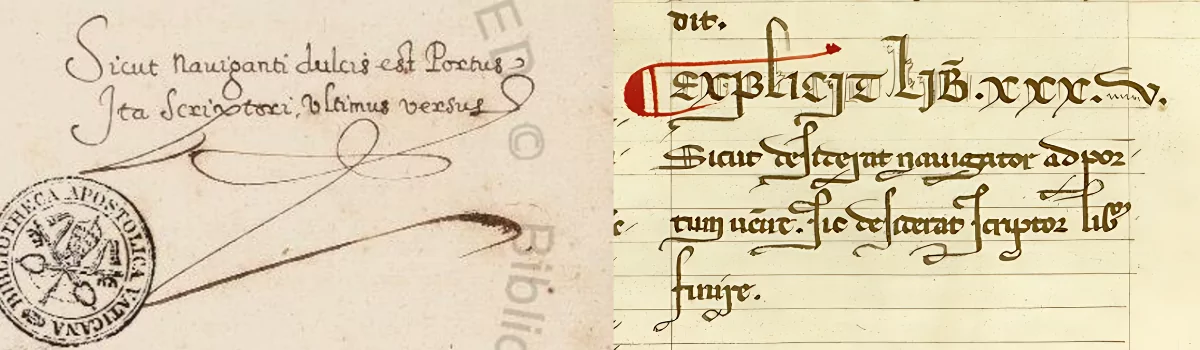 Sicut nauiganti dulcis est Portus
Ita Scriptori, Vltimus versus
BIBLIOTHECA APOSTOLICA VATICANA
dit.
EXPLICIT LIB̄. XXX. V.
Sicut desiderat nauigator ad por
tum uenire. sic desiderat scriptor
finire.